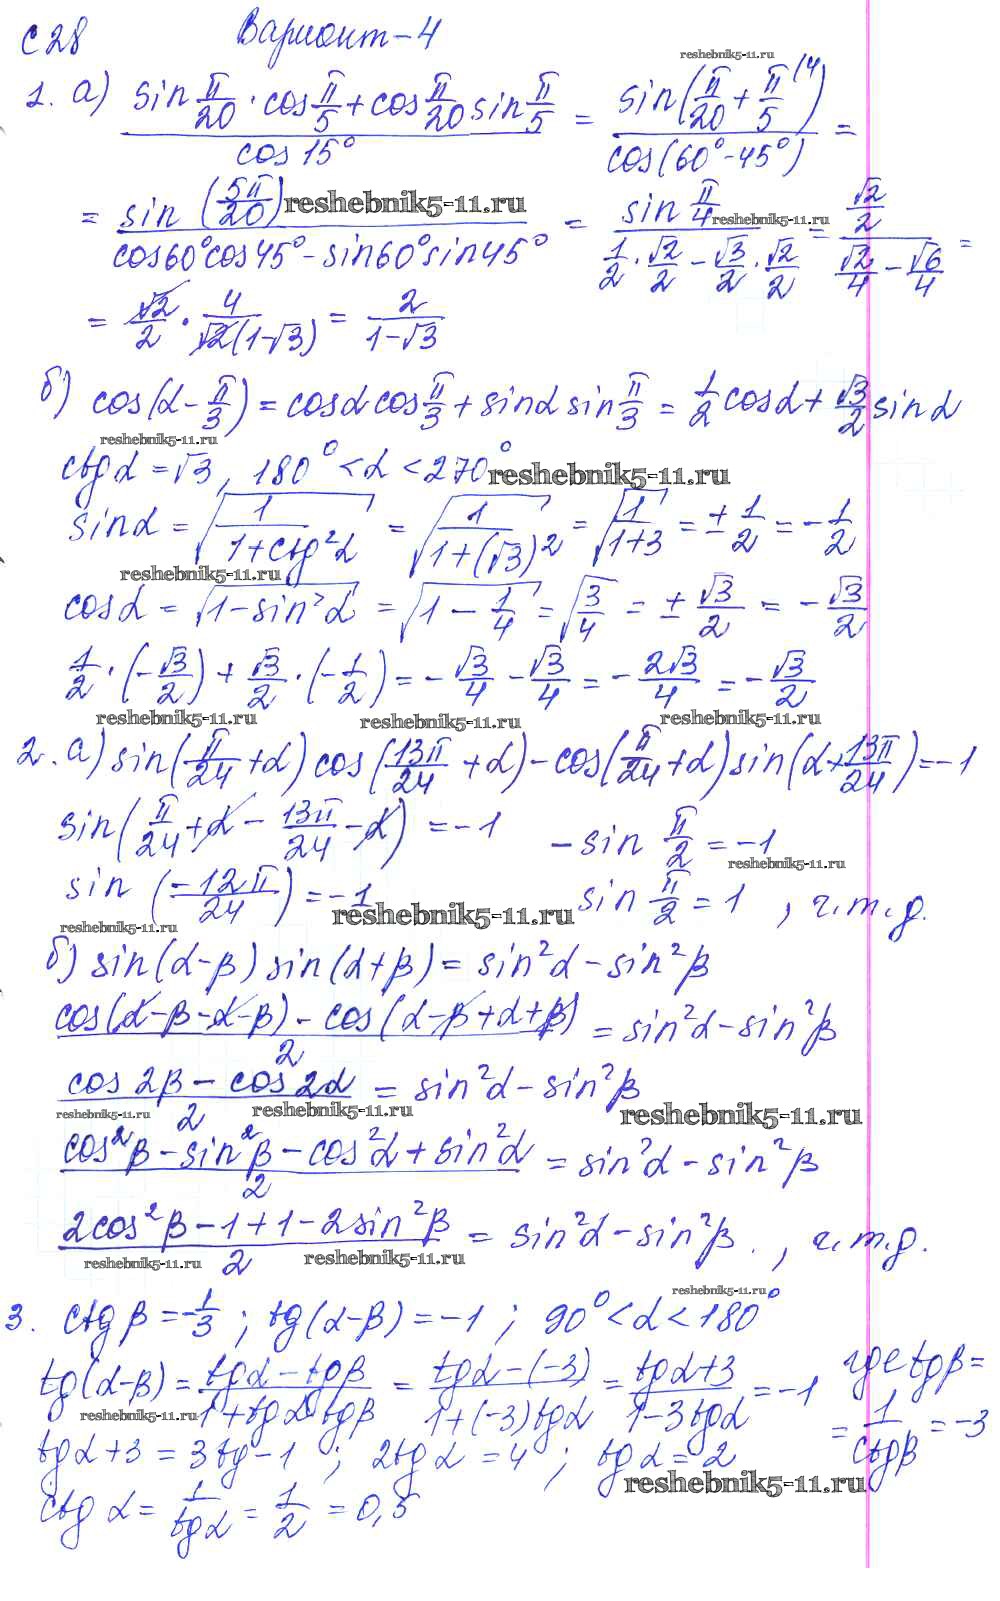 С 28 Вариант-4
reshebnik5-11.ru
1. а) (sin π/20 · cos π/5 + cos π/20 sin π/5) / cos 15° = sin(π/20 + π/5 ⁽⁴) / cos(60° - 45°) =
= sin (5π/20) / (cos60°cos45° - sin60°sin45°) = sin π/4 / (1/2 · √2/2 - √3/2 · √2/2) = (√2/2) / (√2/4 - √6/4) =
reshebnik5-11.ru reshebnik5-11.ru
= √2/2 · 4/(√2(1-√3)) = 2/(1-√3)
б) cos(α - π/3) = cosα cos π/3 + sinα sin π/3 = 1/2 cosα + √3/2 sinα
reshebnik5-11.ru
ctgα = √3, 180° < α < 270°
reshebnik5-11.ru
sinα = √(1/(1+ctg²α)) = √(1/(1+(√3)²)) = √(1/(1+3)) = ± 1/2 = - 1/2
reshebnik5-11.ru
cosα = √(1-sin²α) = √(1 - 1/4) = √(3/4) = ± √3/2 = - √3/2
1/2 · (-√3/2) + √3/2 · (-1/2) = - √3/4 - √3/4 = - 2√3/4 = - √3/2
reshebnik5-11.ru reshebnik5-11.ru reshebnik5-11.ru
2. а) sin(π/24 + α) cos(13π/24 + α) - cos(π/24 + α) sin(α + 13π/24) = -1
sin(π/24 + α - 13π/24 - α) = -1 - sin π/2 = -1
reshebnik5-11.ru
sin (-12π/24) = -1 sin π/2 = 1 , ч.т.д.
reshebnik5-11.ru reshebnik5-11.ru
б) sin(α-β) sin(α+β) = sin²α - sin²β
(cos(α-β-α-β) - cos(α-β+α+β)) / 2 = sin²α - sin²β
(cos 2β - cos 2α) / 2 = sin²α - sin²β
reshebnik5-11.ru reshebnik5-11.ru reshebnik5-11.ru
(cos²β - sin²β - cos²α + sin²α) / 2 = sin²α - sin²β
(2cos²β - 1 + 1 - 2sin²β) / 2 = sin²α - sin²β. , ч.т.д.
reshebnik5-11.ru reshebnik5-11.ru
reshebnik5-11.ru
3. ctg β = -1/3 ; tg(α-β) = -1 ; 90° < α < 180°
tg(α-β) = (tgα - tgβ)/(1 + tgα tgβ) = (tgα - (-3))/(1+(-3)tgα) = (tgα+3)/(1-3tgα) = -1 где tgβ =
= 1/ctgβ = -3
reshebnik5-11.ru
tgα + 3 = 3tg - 1 ; 2tgα = 4 ; tgα = 2
reshebnik5-11.ru
ctg α = 1/tgα = 1/2 = 0,5